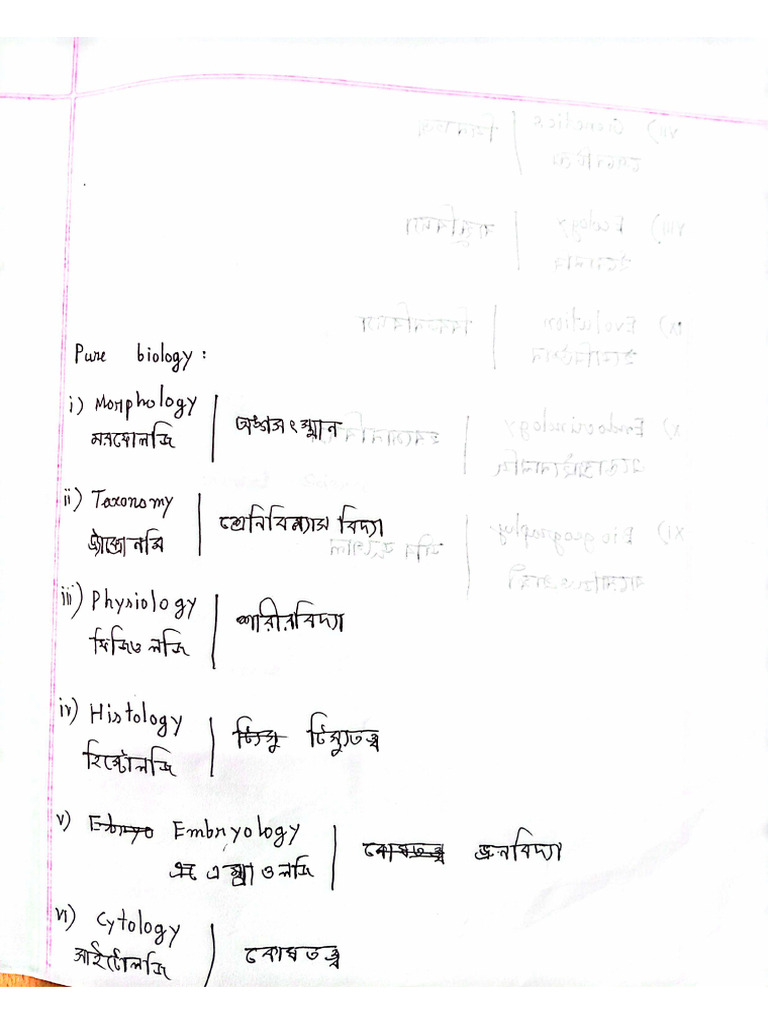 Pure biology :
i) Morphology | অঙ্গসংস্থান
মরফোলজি
ii) Taxonomy | শ্রেনিবিন্যাস বিদ্যা
ট্যাক্সোনমি
iii) Physiology | শারীরবিদ্যা
ফিজিওলজি
iv) Histology | টিস্যুতত্ত্ব
হিস্টোলজি
v) Embryo Embryology | কোষতত্ত্ব ভ্রূনবিদ্যা
এম্ব্রাওলজি
vi) Cytology | কোষতত্ত্ব
সাইটোলজি